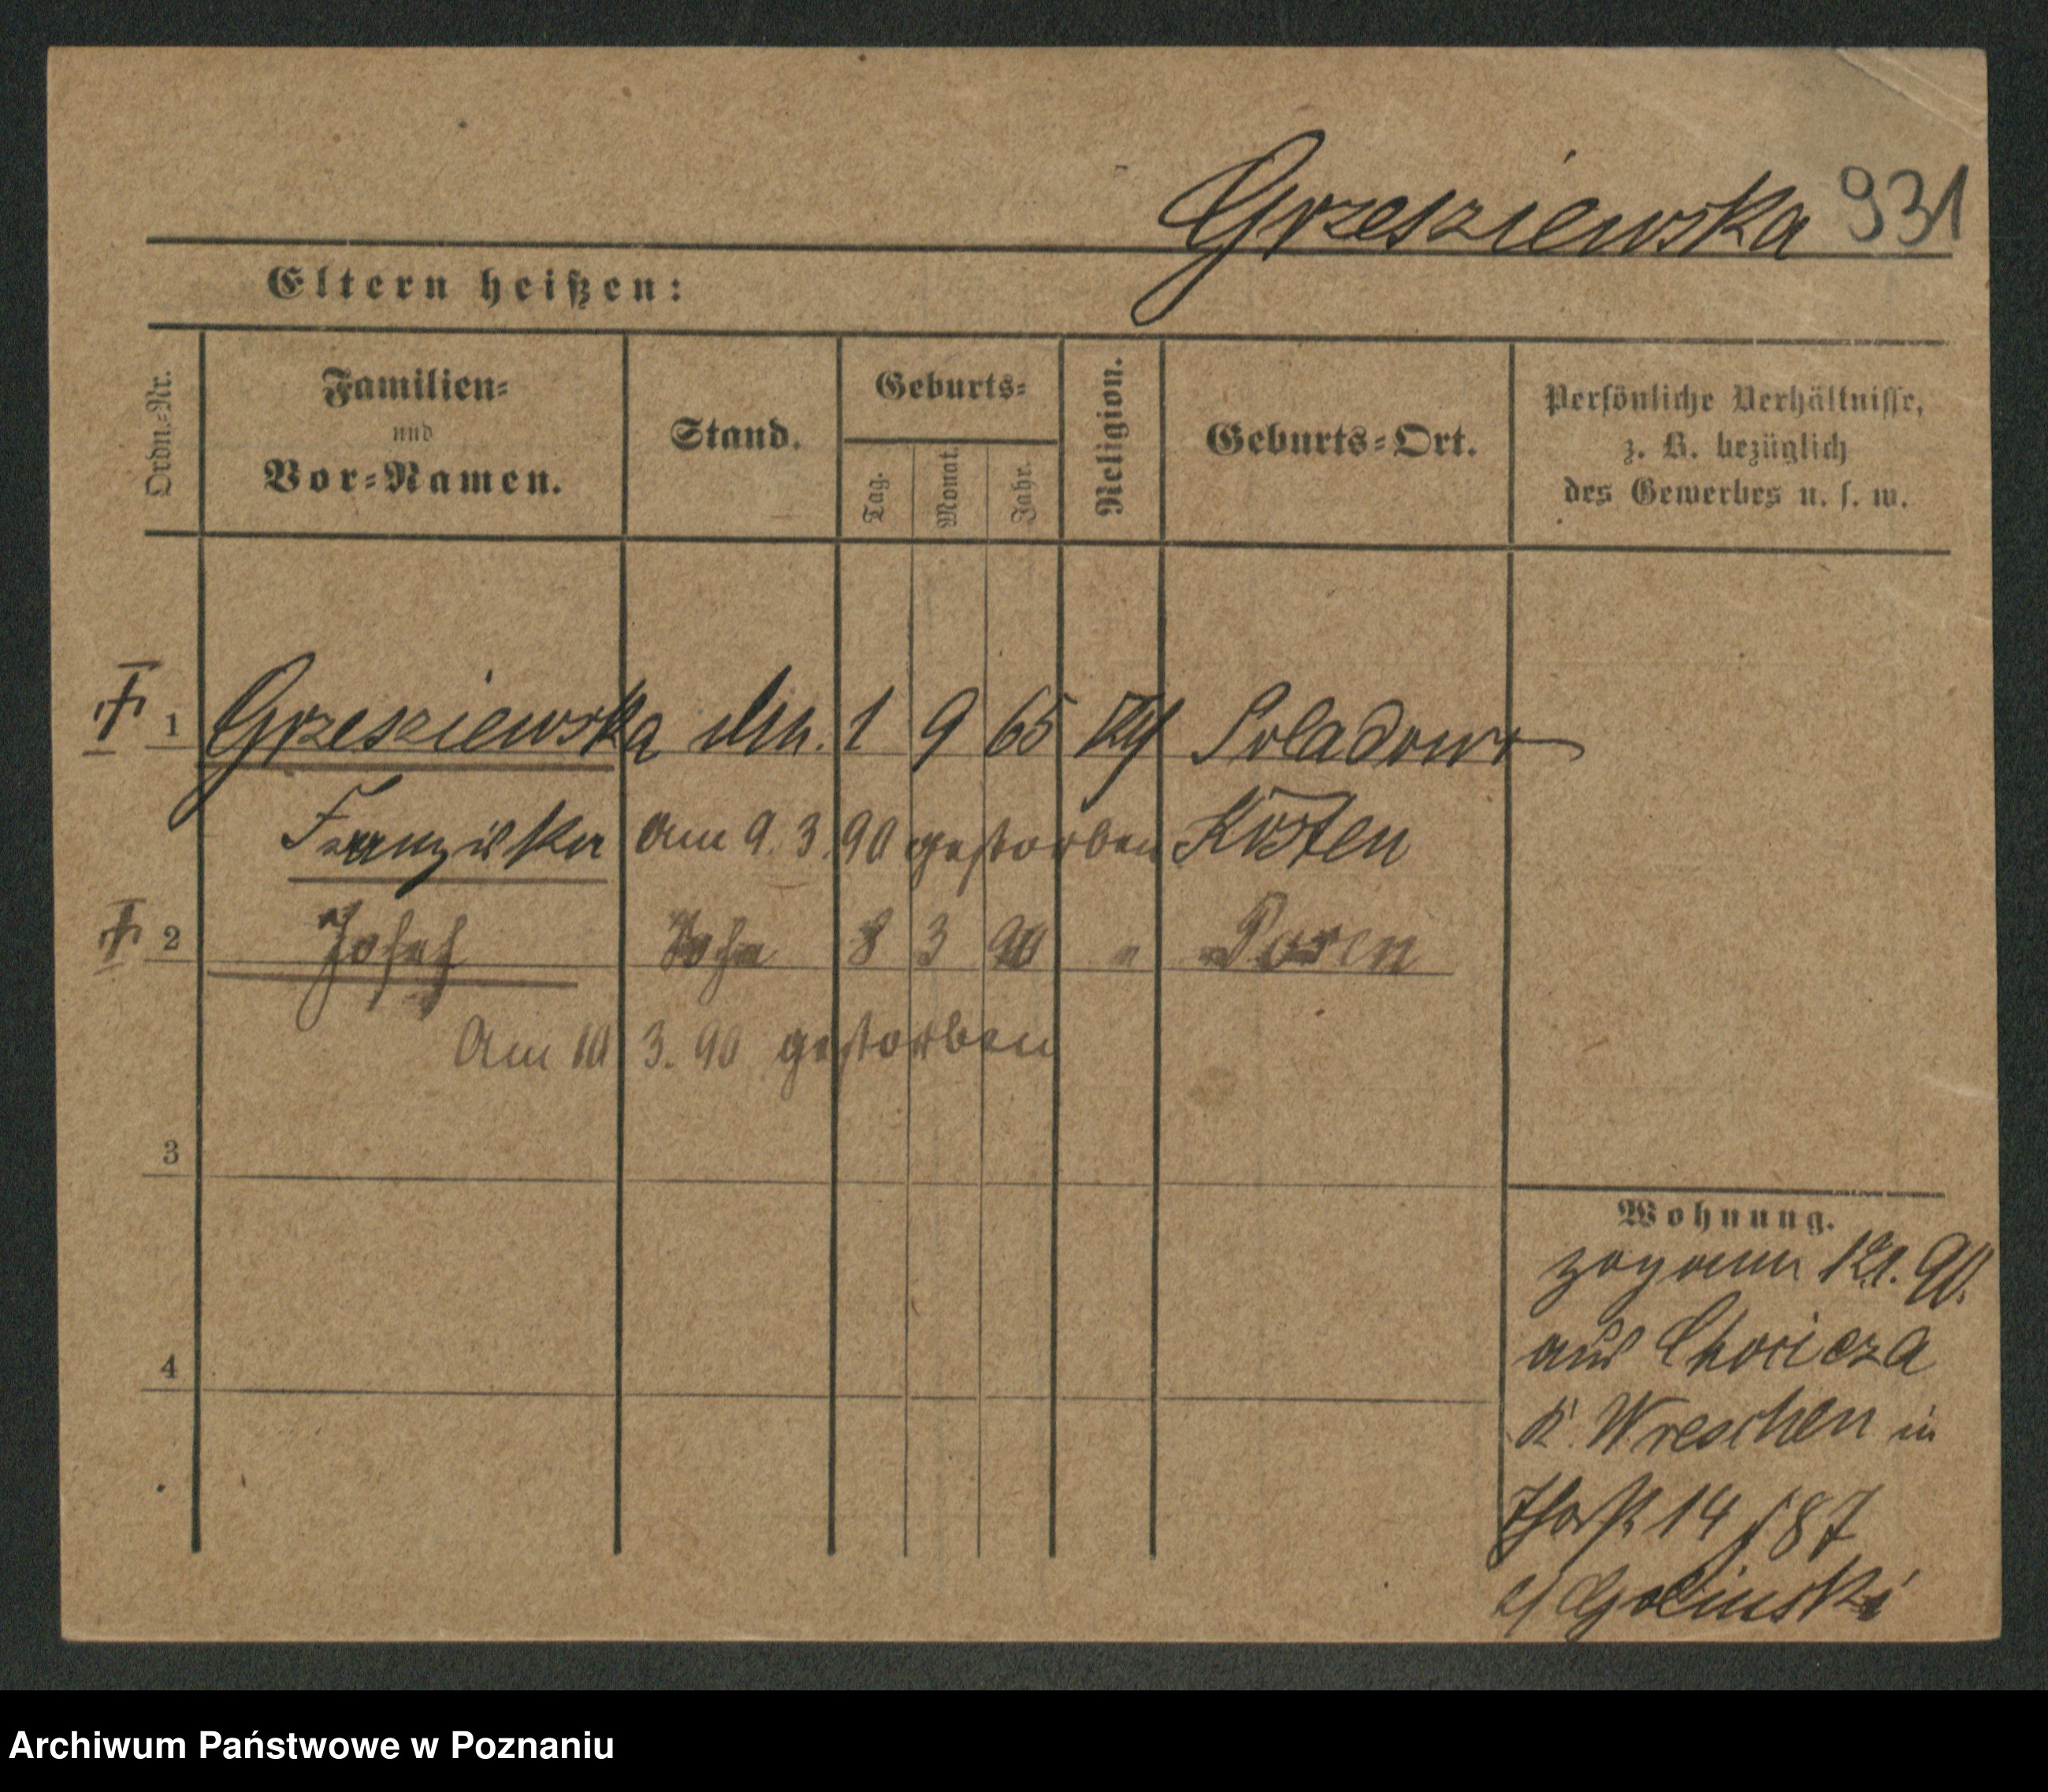 Grzesziewska 931
Eltern heißen:
Ordn.-Nr.
Familien-
und
Vor-Namen.
Stand.
Geburts-
Tag.
Monat.
Jahr.
Religion.
Geburts-Ort.
Persönliche Verhältnisse,
z. B. bezüglich
des Gewerbes u. s. w.
1 Grzesziewska 1 9 65
Franziska am 9. 3. 90 gestorben Kosten
2 Josef Sohn 8 3 90 " Posen
Am 10 3. 90 gestorben
3
4
Wohnung.
90.
aus Choricza
K. Wreschen in
14 87
Golinski
Archiwum Państwowe w Poznaniu